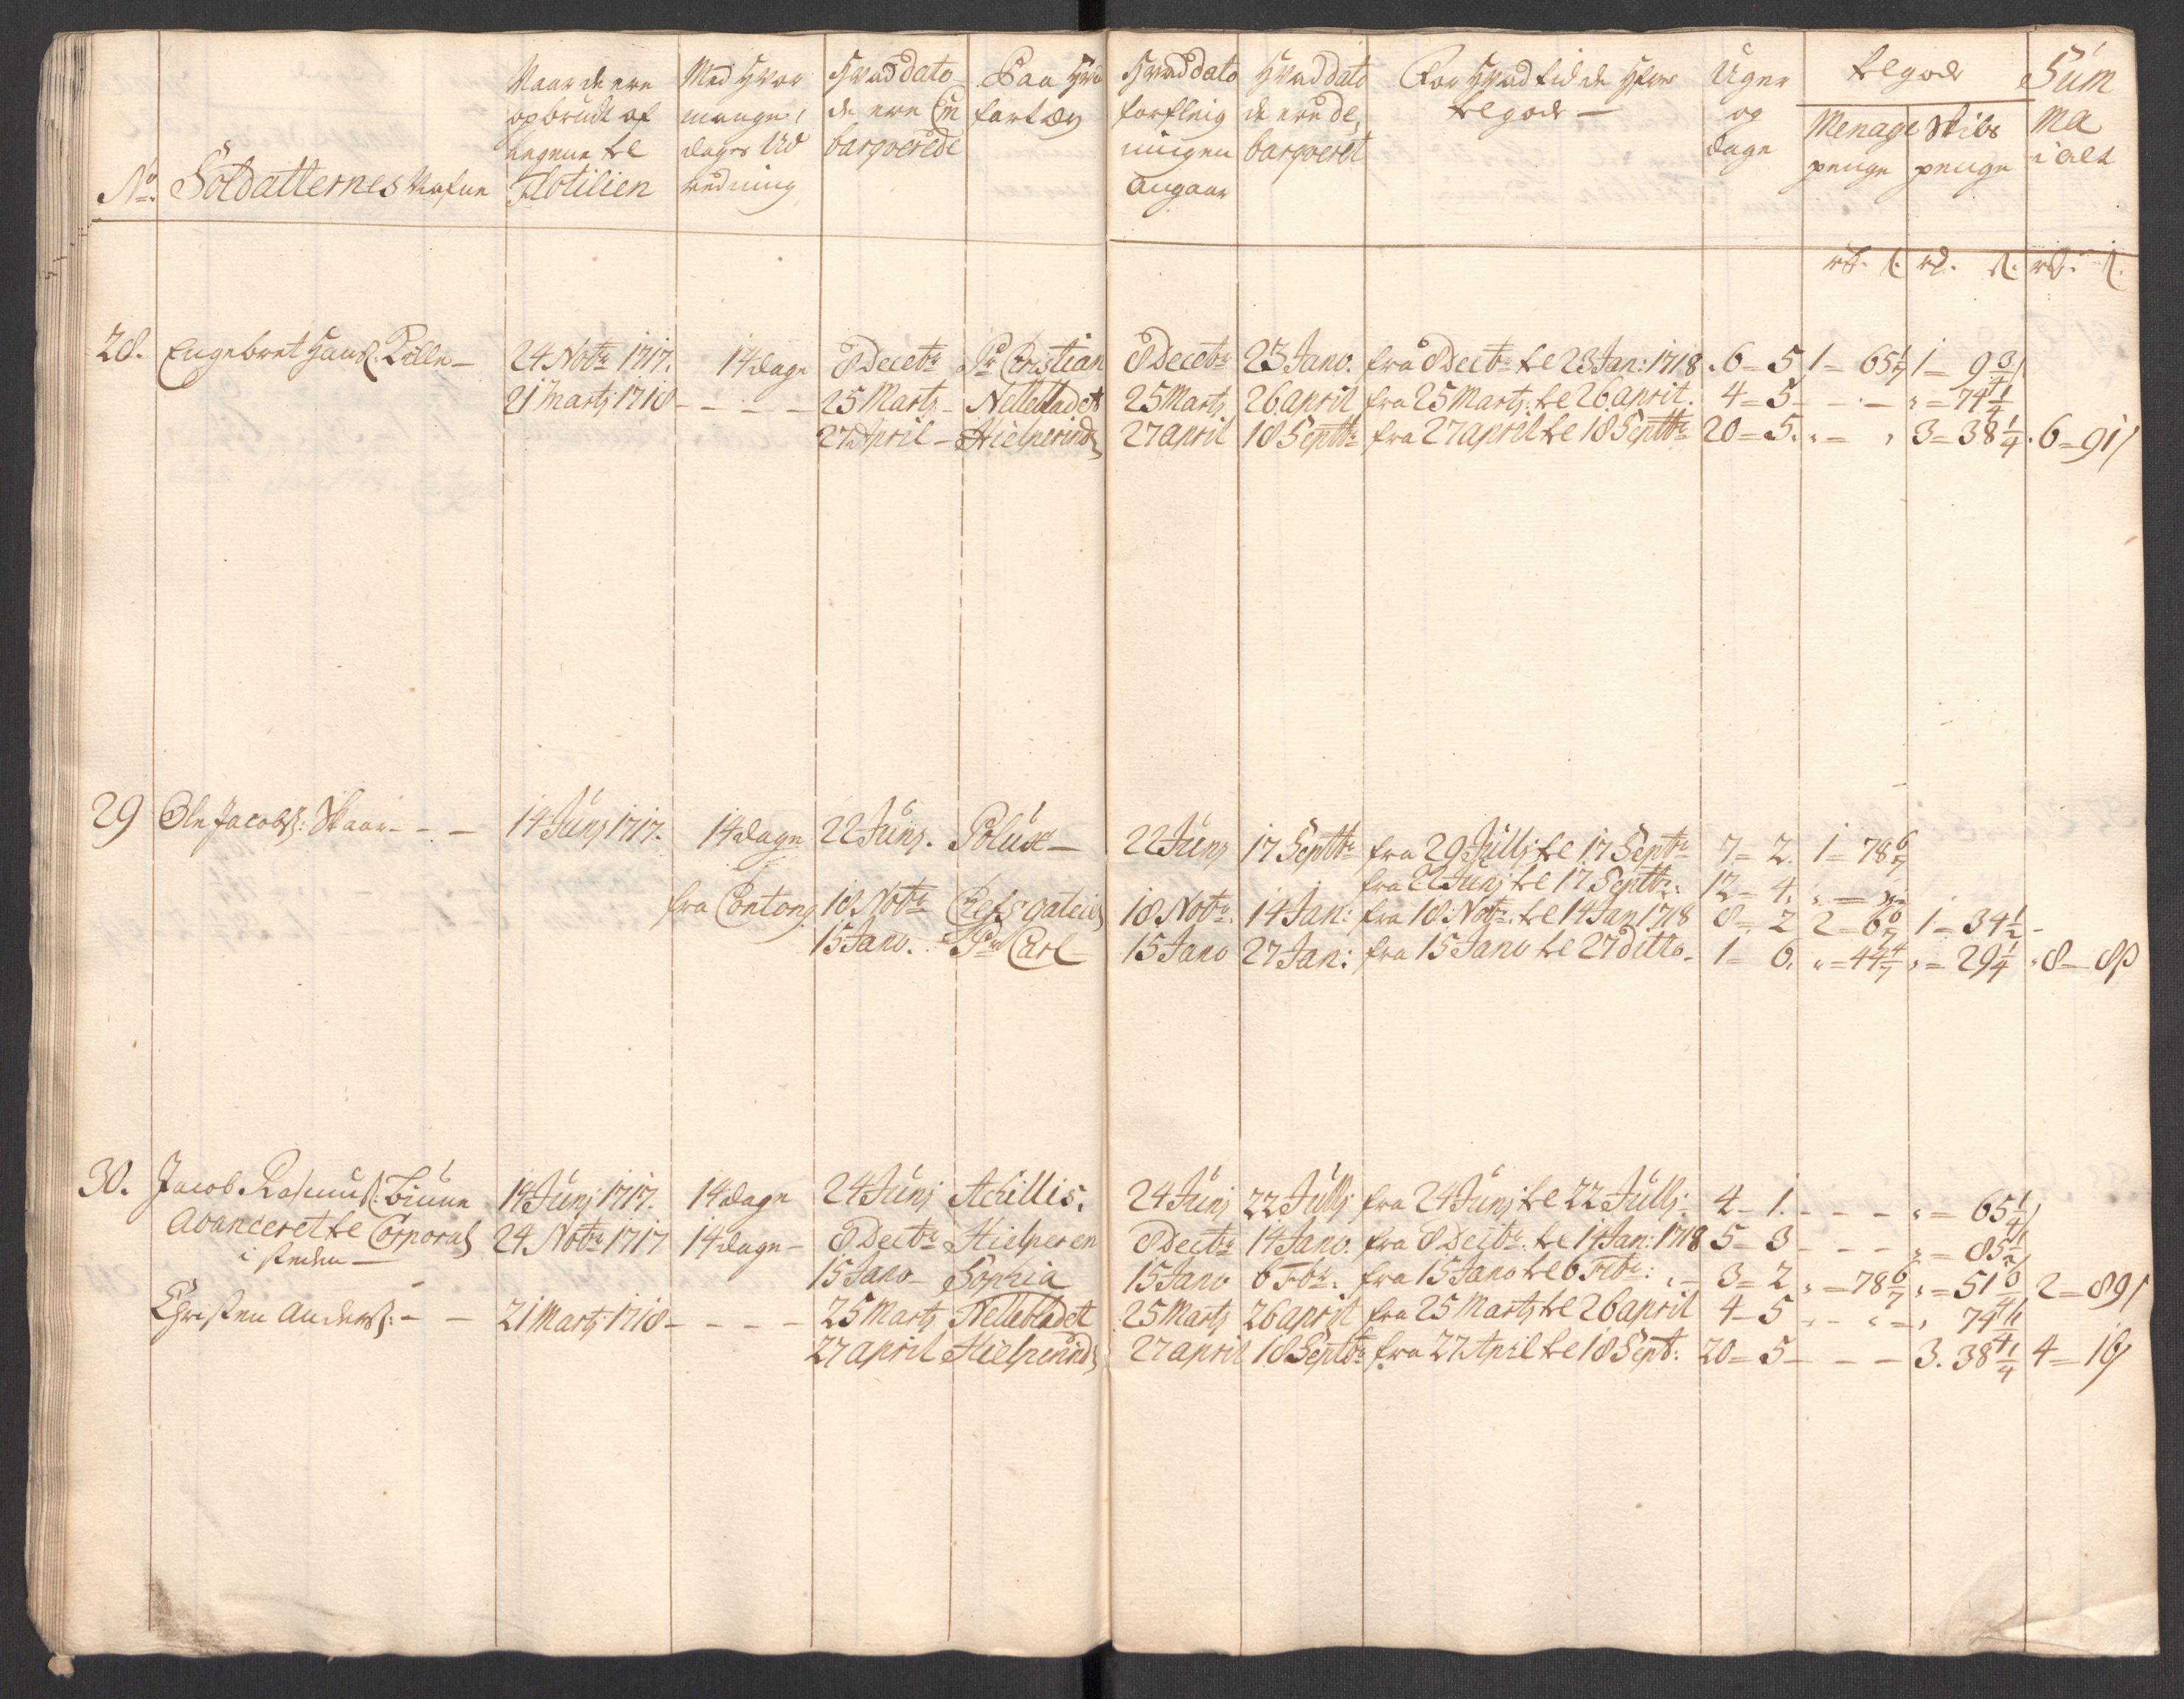 No. Soldatternes Nafne
Naar de ere opbrudt af Legene til Flotilien
Med Hvor mange dages Ud redning
Hvad dato de ere Em barqverede
Paa Hvad fartøy
Hvad dato forpleig ningen angaar
Hvad dato de ere de, barqveret
For Hvad tid de Hfver tilgode —
Uger og dage
tilgode
Menage penge
Skibs penge
Sum ma i alt
rd. s. rd. s. rd. s.
28. Engebret Hans: Tølle — 24 Notr 1717. 14 dage 8 Decebr Pr Christian 8 Decebr 23 Jano. fra 8 Decbr til 23 Jan: 1718. 6 = 5 1 = 65 1/7 1 = 9 3/4
21 Martj 1718 - - - - 25 Martj - Nellebladet 25 Martj 26 april fra 25 Martj: til 26 april. 4 = 5 - - - „ = 74 1/4
27 April - Hielperinds 27 april 18 Septbr fra 27 april til 18 Septbr 20 = 5. „ = „ 3 = 38 1/4. 6 = 91/
29 Ole Jacobs: Skaar - - - 14 Junj 1717. 14 dage 22 Junj. Polux — 22 Junj 17 Septbr fra 29 Julij til 17 Septr 7 = 2. 1 = 78 6/7
fra 22 Junj til 17 Septbr: 12 = 4. „ =
fra Contong. 18 Notr 18 Notr: 14 Jan: fra 18 Notr: til 14 Jan 1718 8 = 2 2 = 6 6/7 1 = 34 1/2 -
15 Jano. Pr Carl 15 Jano 27 Jan: fra 15 Jano til 27 ditto. 1 = 6. „ = 44 4/7 „ = 29 1/4 . 8 = 8β
30. Jacob Rasmus: Biune 14 Junj 1717. 14 dage 24 Junj Achillis. 24 Junj 22 Julij fra 24 Junj til 22 Julij: 4 - 1. - - - „ = 65 1/4/
Avanceret til Corporal 24 Notr 1717 14 dage - 8 Decbr Hielperen 8 Decbr 14 Jano. fra 8 Decbr: til 14 Jan: 1718 5 - 3 - - - „ = 85 1/2/
i steden — 15 Jano - Sophia 15 Jano 6 Fbr: fra 15 Jano til 6 Febr: „ - 3 = 2 „ = 78 6/7 „ = 51 2 = 89/
Christen Anders: - - 21 Martj 1718 - - - - 25 Martj Nellebladet 25 Martj 26 april fra 25 Martj til 26 april 4 - 5 „ - „ = „ 74 1/4
27 april Hielperinds 27 april 18 Septbr fra 27 April til 18 Sept: 20 = 5 - - - 3. 38 1/4 4 = 16/